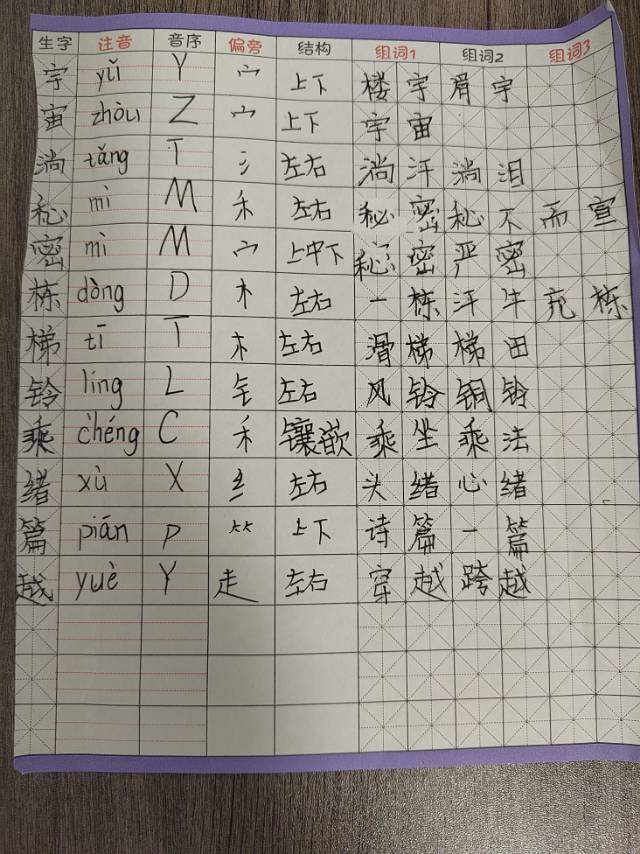 生字 注音 音序 偏旁 结构 组词1 组词2 组词3
宇 yǔ Y 宀 上下 楼宇 眉宇
宙 zhòu Z 宀 上下 宇宙
淌 tǎng T 氵 左右 淌汗 淌泪
秘 mì M 禾 左右 秘密 秘不而宣
密 mì M 宀 上中下 秘密 严密
栋 dòng D 木 左右 一栋 汗牛充栋
梯 tī T 木 左右 滑梯 梯田
铃 líng L 钅 左右 风铃 铜铃
乘 chéng C 禾 镶嵌 乘坐 乘法
绪 xù X 纟 左右 头绪 心绪
篇 piān P ⺮ 上下 诗篇 一篇
越 yuè Y 走 左右 穿越 跨越